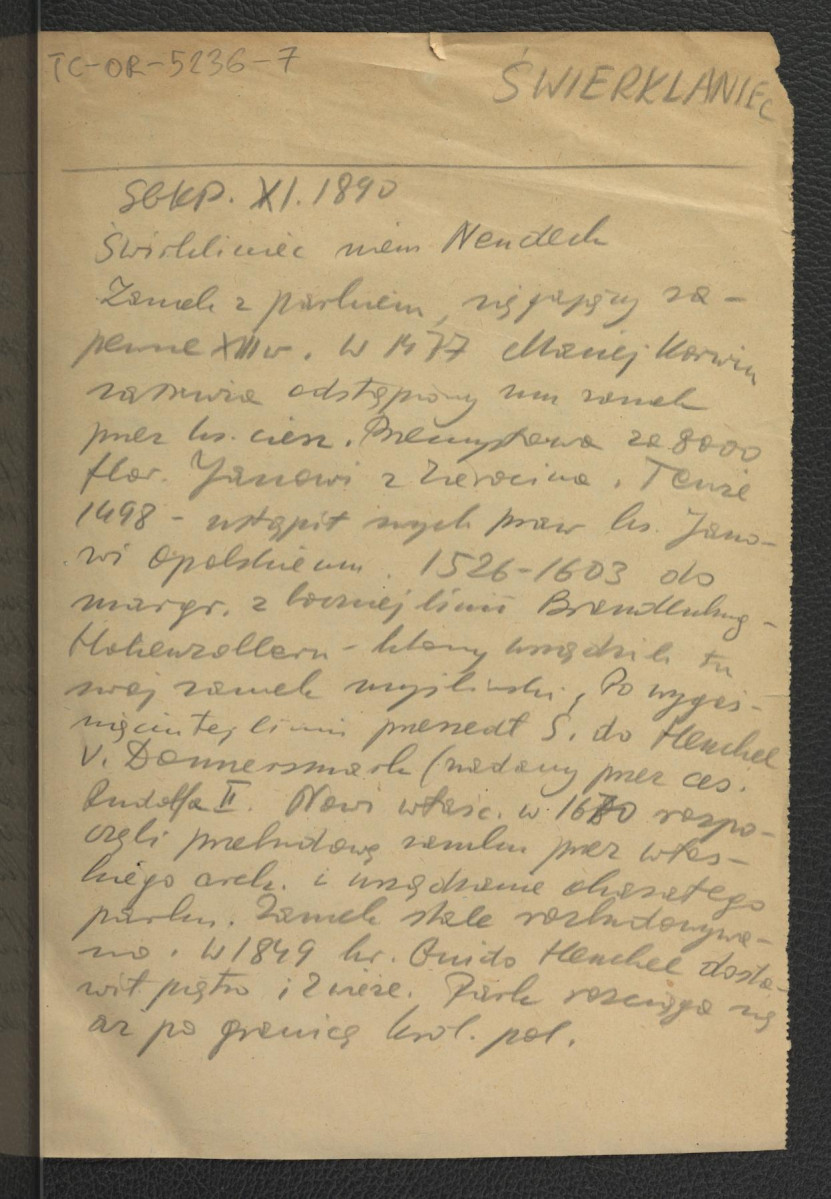 TC-OR-5236-7
ŚWIERKLANIEC
SGKP. XI. 1890
Świrkliniec niem Neudeck
Zamek z parkiem, sięgający za-
pewne XIII w. W 1477 Maciej Korwin
zastawia odstąpiony mu zamek
przez ks. ciesz. Przemysława za 8000
flor. Janowi z Zierocina. Tenże
1498 - ustąpił swych praw ks. Jano-
wi Opolskiemu. 1526-1603 do
margr. z bocznej linii Brandenburg-
Hohenzollern - który urządzili tu
swój zamek myśliwski, Po wygaś-
nięciu tej linii przeszedł Ś. do Henckel
v. Donnersmark (nadany przez ces.
Rudolfa II. Nowi właśc. w 1670 rozpo-
częli przebudowę zamku przez włos-
kiego arch. i urządzanie okazałego
parku. Zamek stale rozbudowywa-
no. W 1849 hr. Guido Henckel dosta-
wił piętro i 2 wieże. Park rozciąga się
aż po granicę król. pol.